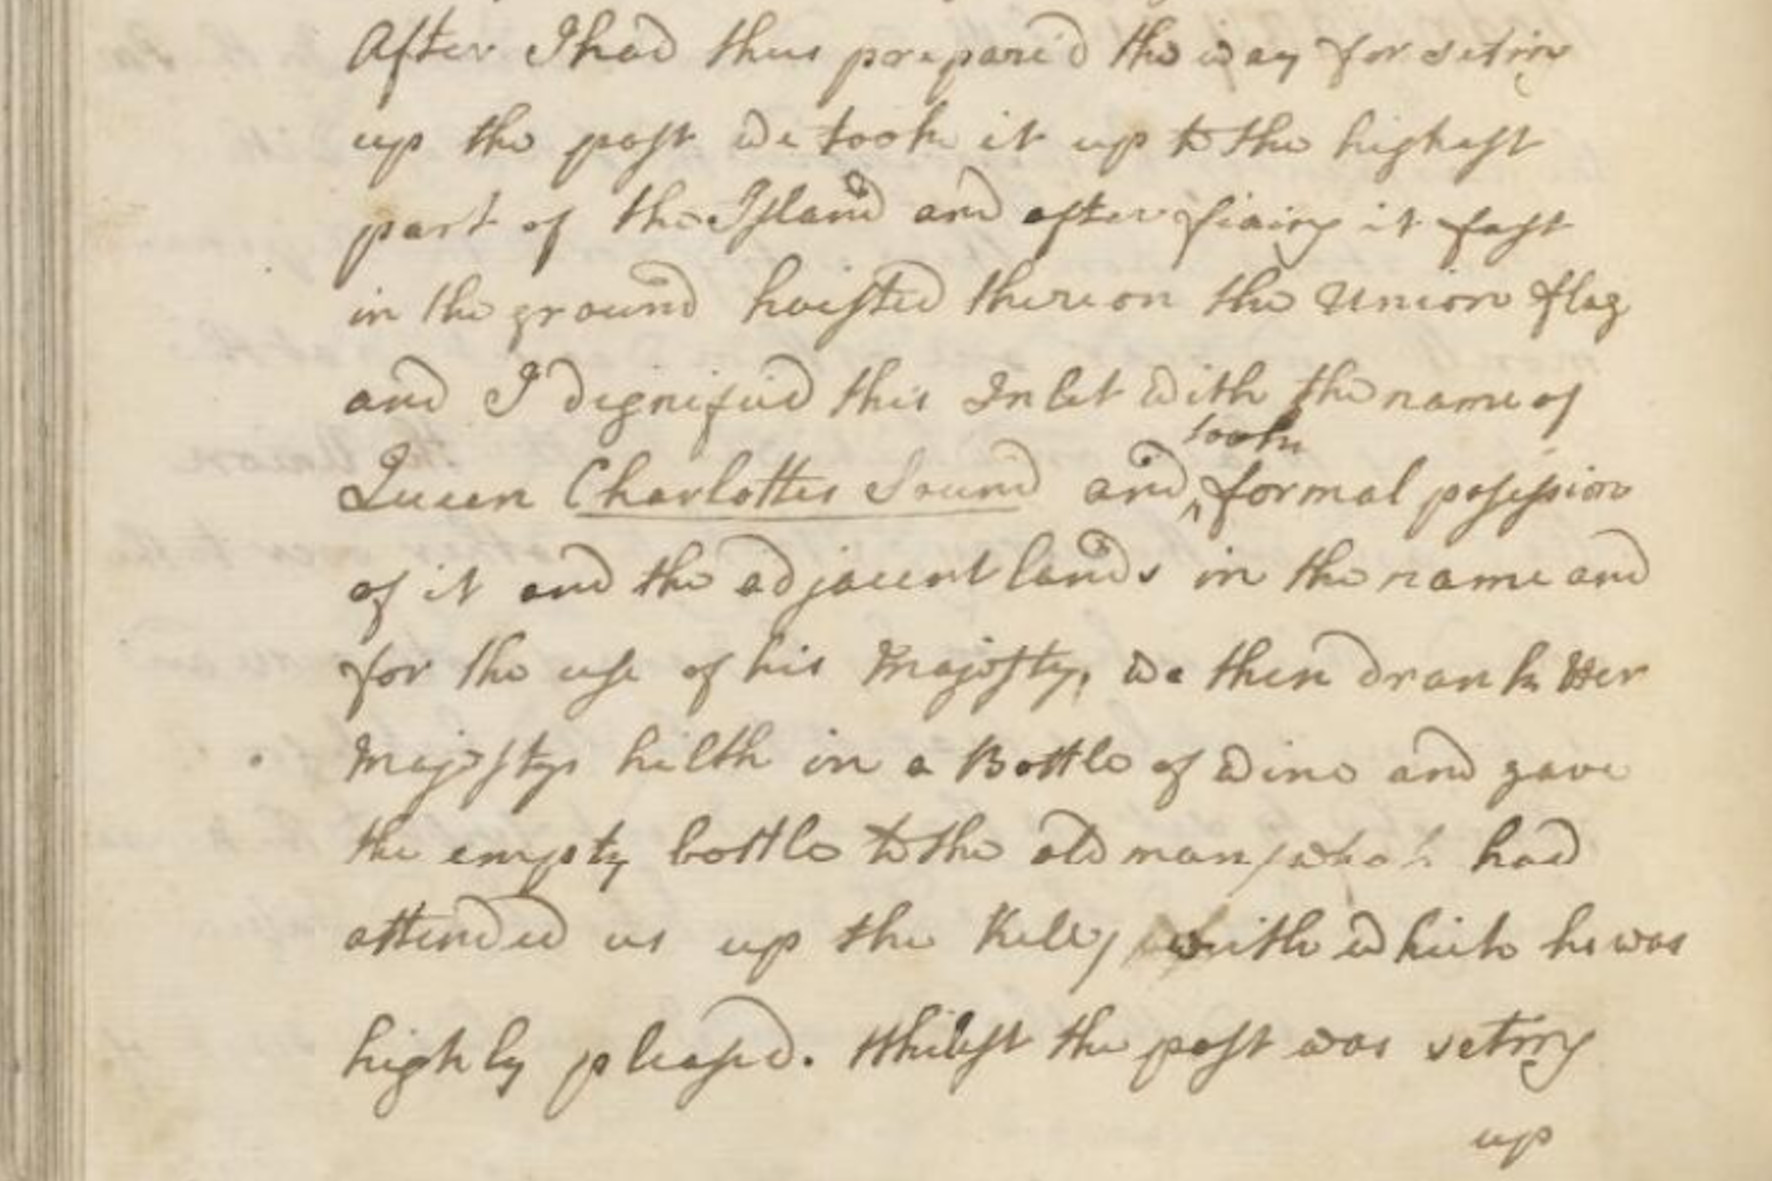 After I had thus prepare'd the way for seting
up the post we took it up to the highest
part of the Island and after fixing it fast
in the ground hoisted thereon the Union flag
and I dignified this Inlet with the name of
Queen Charlottes Sound and took formal posession
of it and the adjacent lands in the name and
for the use of his Majesty, we then drank Her
Majestys hilth in a Bottle of wine and gave
the empty bottle to the old man (who had
attended us up the hill) with which he was
highly pleased. Whilest the post was seting
up